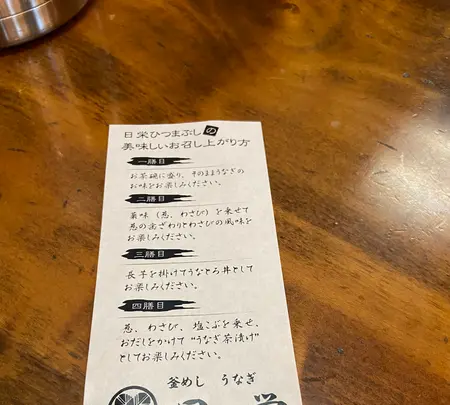 日栄ひつまぶしの
美味しいお召し上がり方
一膳目
お茶碗に盛り、そのままうなぎの
お味をお楽しみください。
二膳目
薬味（葱、わさび）を乗せて
葱の歯ざわりとわさびの風味を
お楽しみください。
三膳目
長芋を掛けてうなとろ丼として
お楽しみください。
四膳目
葱、わさび、塩こぶを乗せ、
おだしをかけて“うなぎ茶漬け”
としてお楽しみください。
釜めし うなぎ